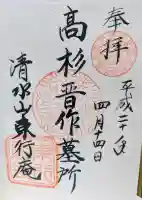 奉拝
平成二十八年
四月十四日
高杉晋作墓所
清水山東行庵